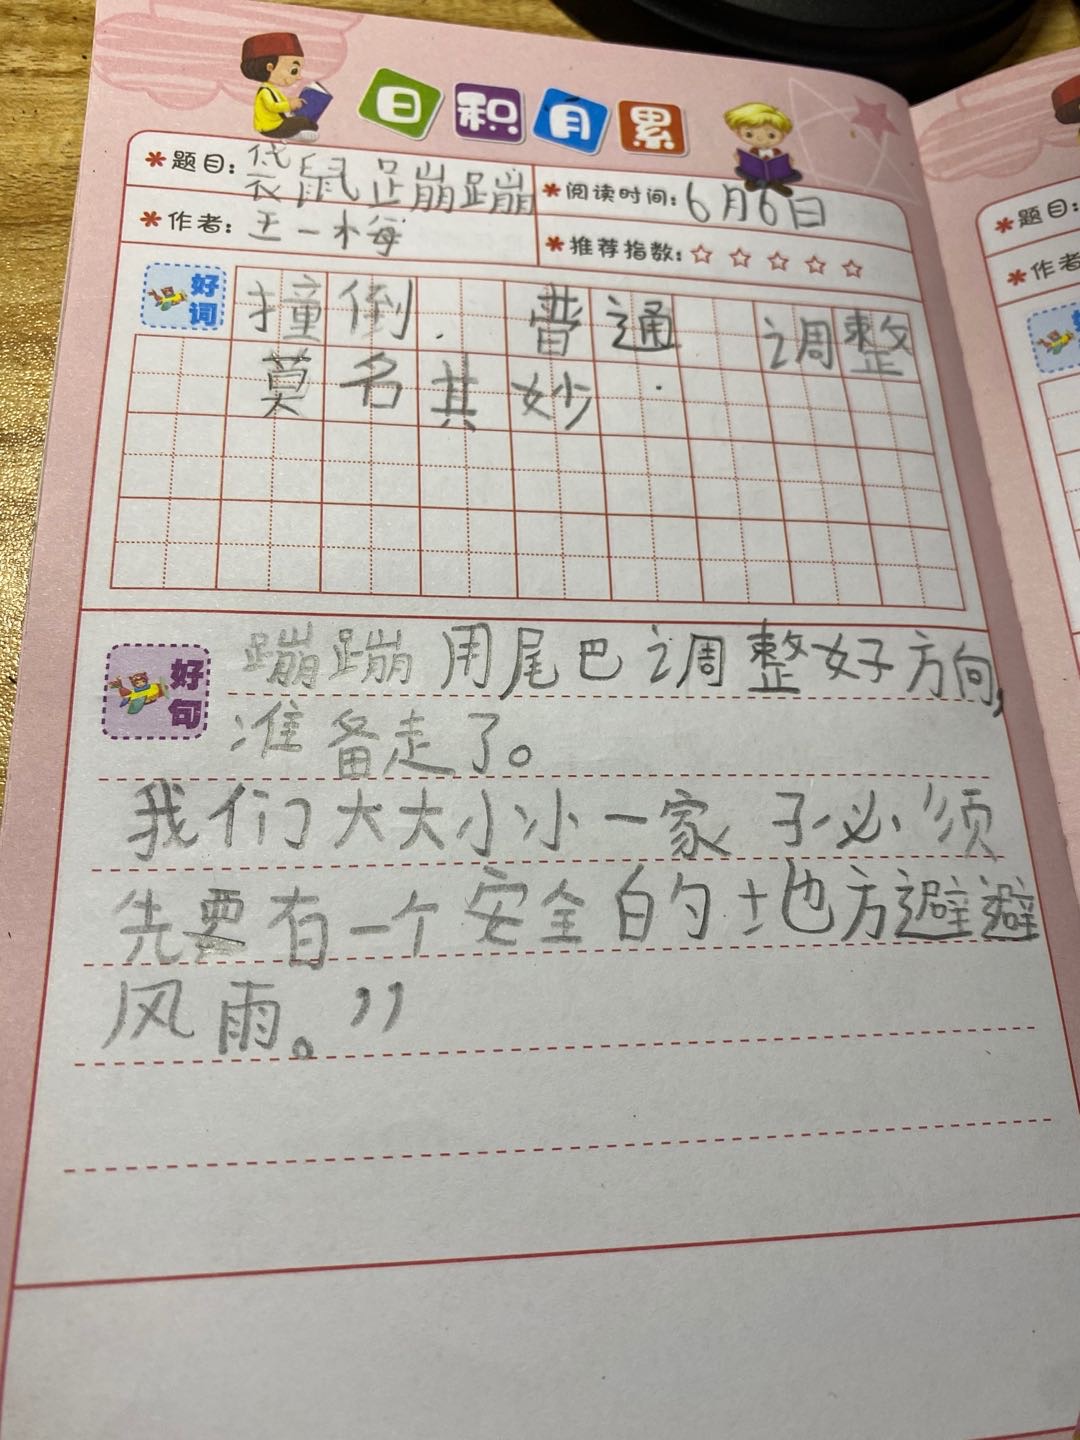 日积月累
题目：袋鼠蹦蹦
阅读时间：6月6日
作者：王一梅
推荐指数：☆☆☆☆☆
好词
撞倒. 普通 调整
莫名其妙.
好句
蹦蹦用尾巴调整好方向，
准备走了。
我们大大小小一家子必须
先要有一个安全的地方避避
风雨。”
题目：
作者